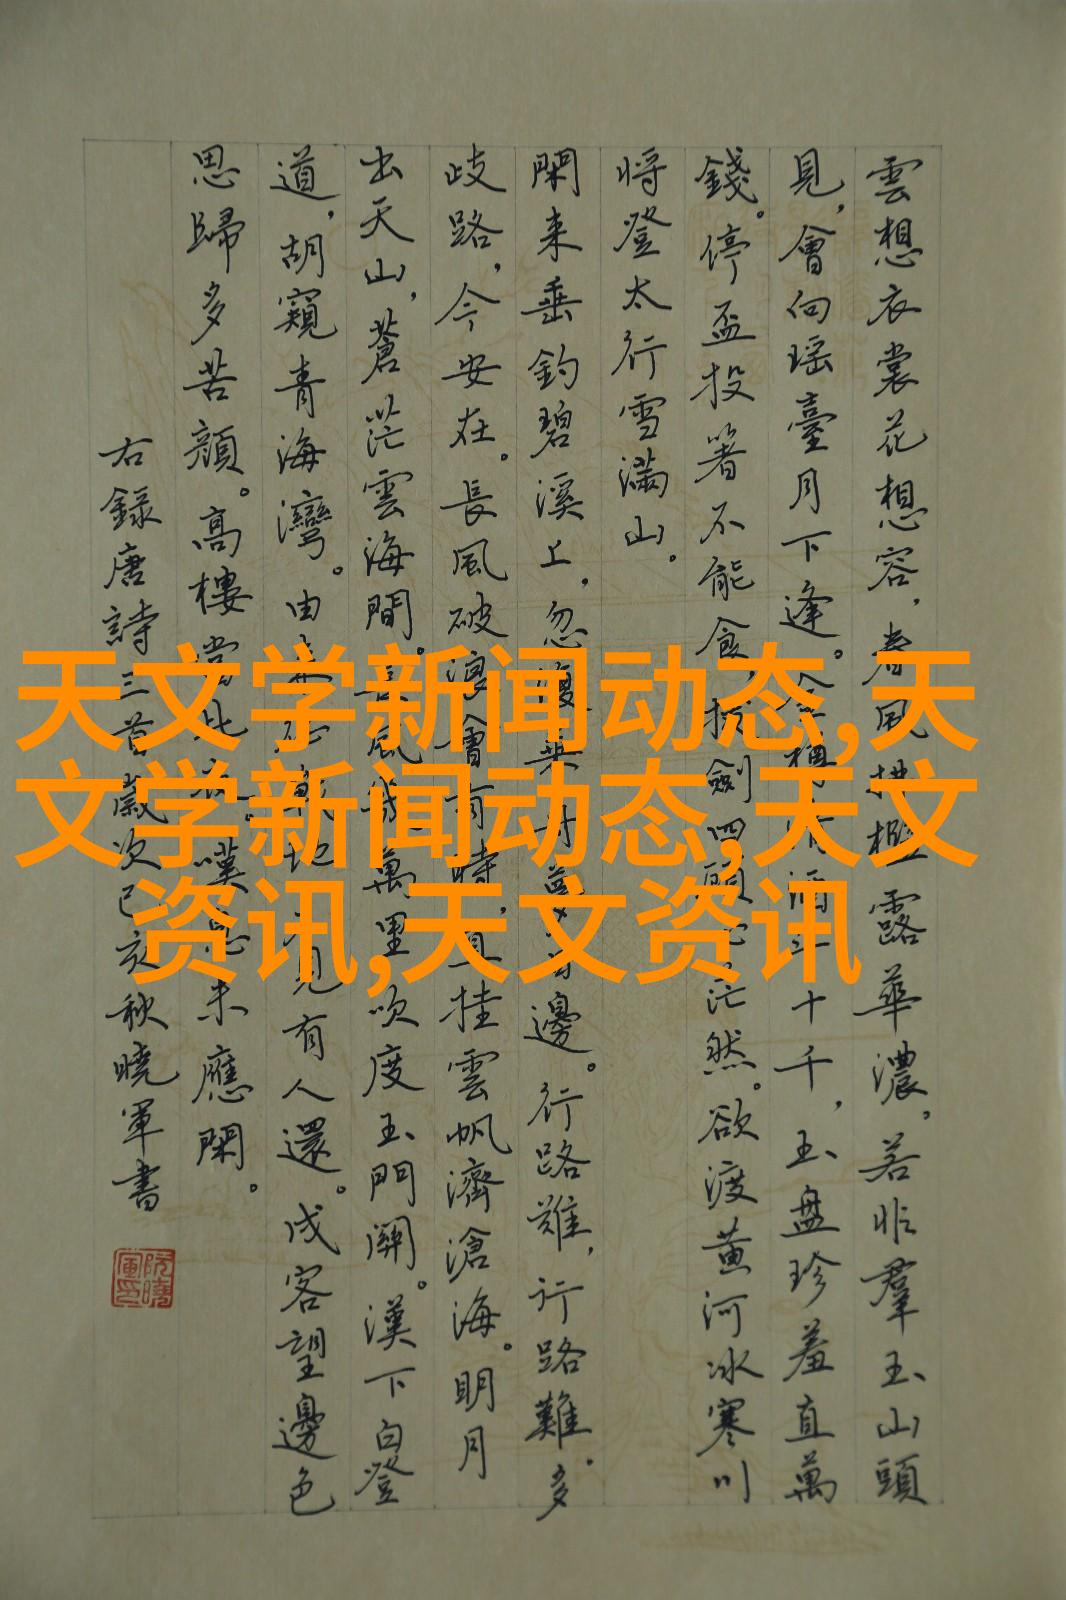 雲想衣裳花想容，春風拂檻露華濃，若非羣玉山頭
見，會向瑶臺月下逢。金樽清酒斗十千，玉盤珍羞直萬
錢。停盃投箸不能食，拔劍四顧心茫然。欲渡黄河冰寒川
将登太行雪滿山。
閑来垂釣碧溪上，忽復乘舟夢日邊。行路難，行路難。多
歧路，今安在。長風破浪會有時，直挂雲帆濟滄海。明月
出天山，蒼茫雲海間。長風幾萬里，吹度玉門關。漢下白登
道，胡窺青海灣。由来征戰地，不見有人還。戍客望邊色
思歸多苦顔。高樓當此夜，嘆息未應閑。
右録唐詩三首歲次己亥秋曉軍書
阮曉軍印
天文学新闻动态,天
文学新闻动态,天文
资讯,天文资讯